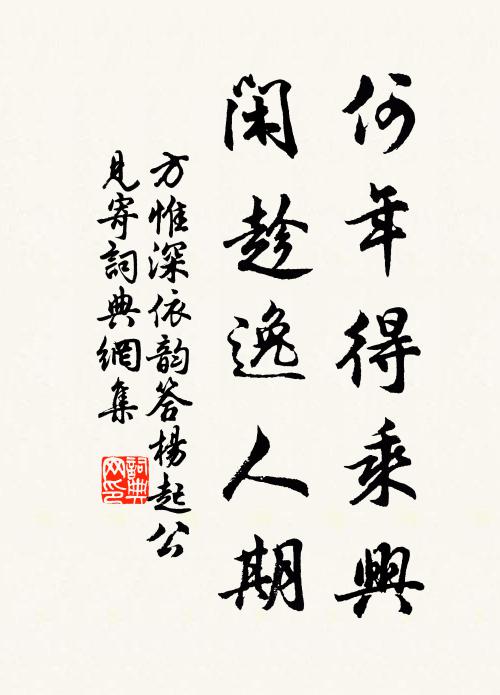 何年得乘興
閑趁逸人期
方惟深依韵答楊起公
見寄詞典網集
詞典
网印